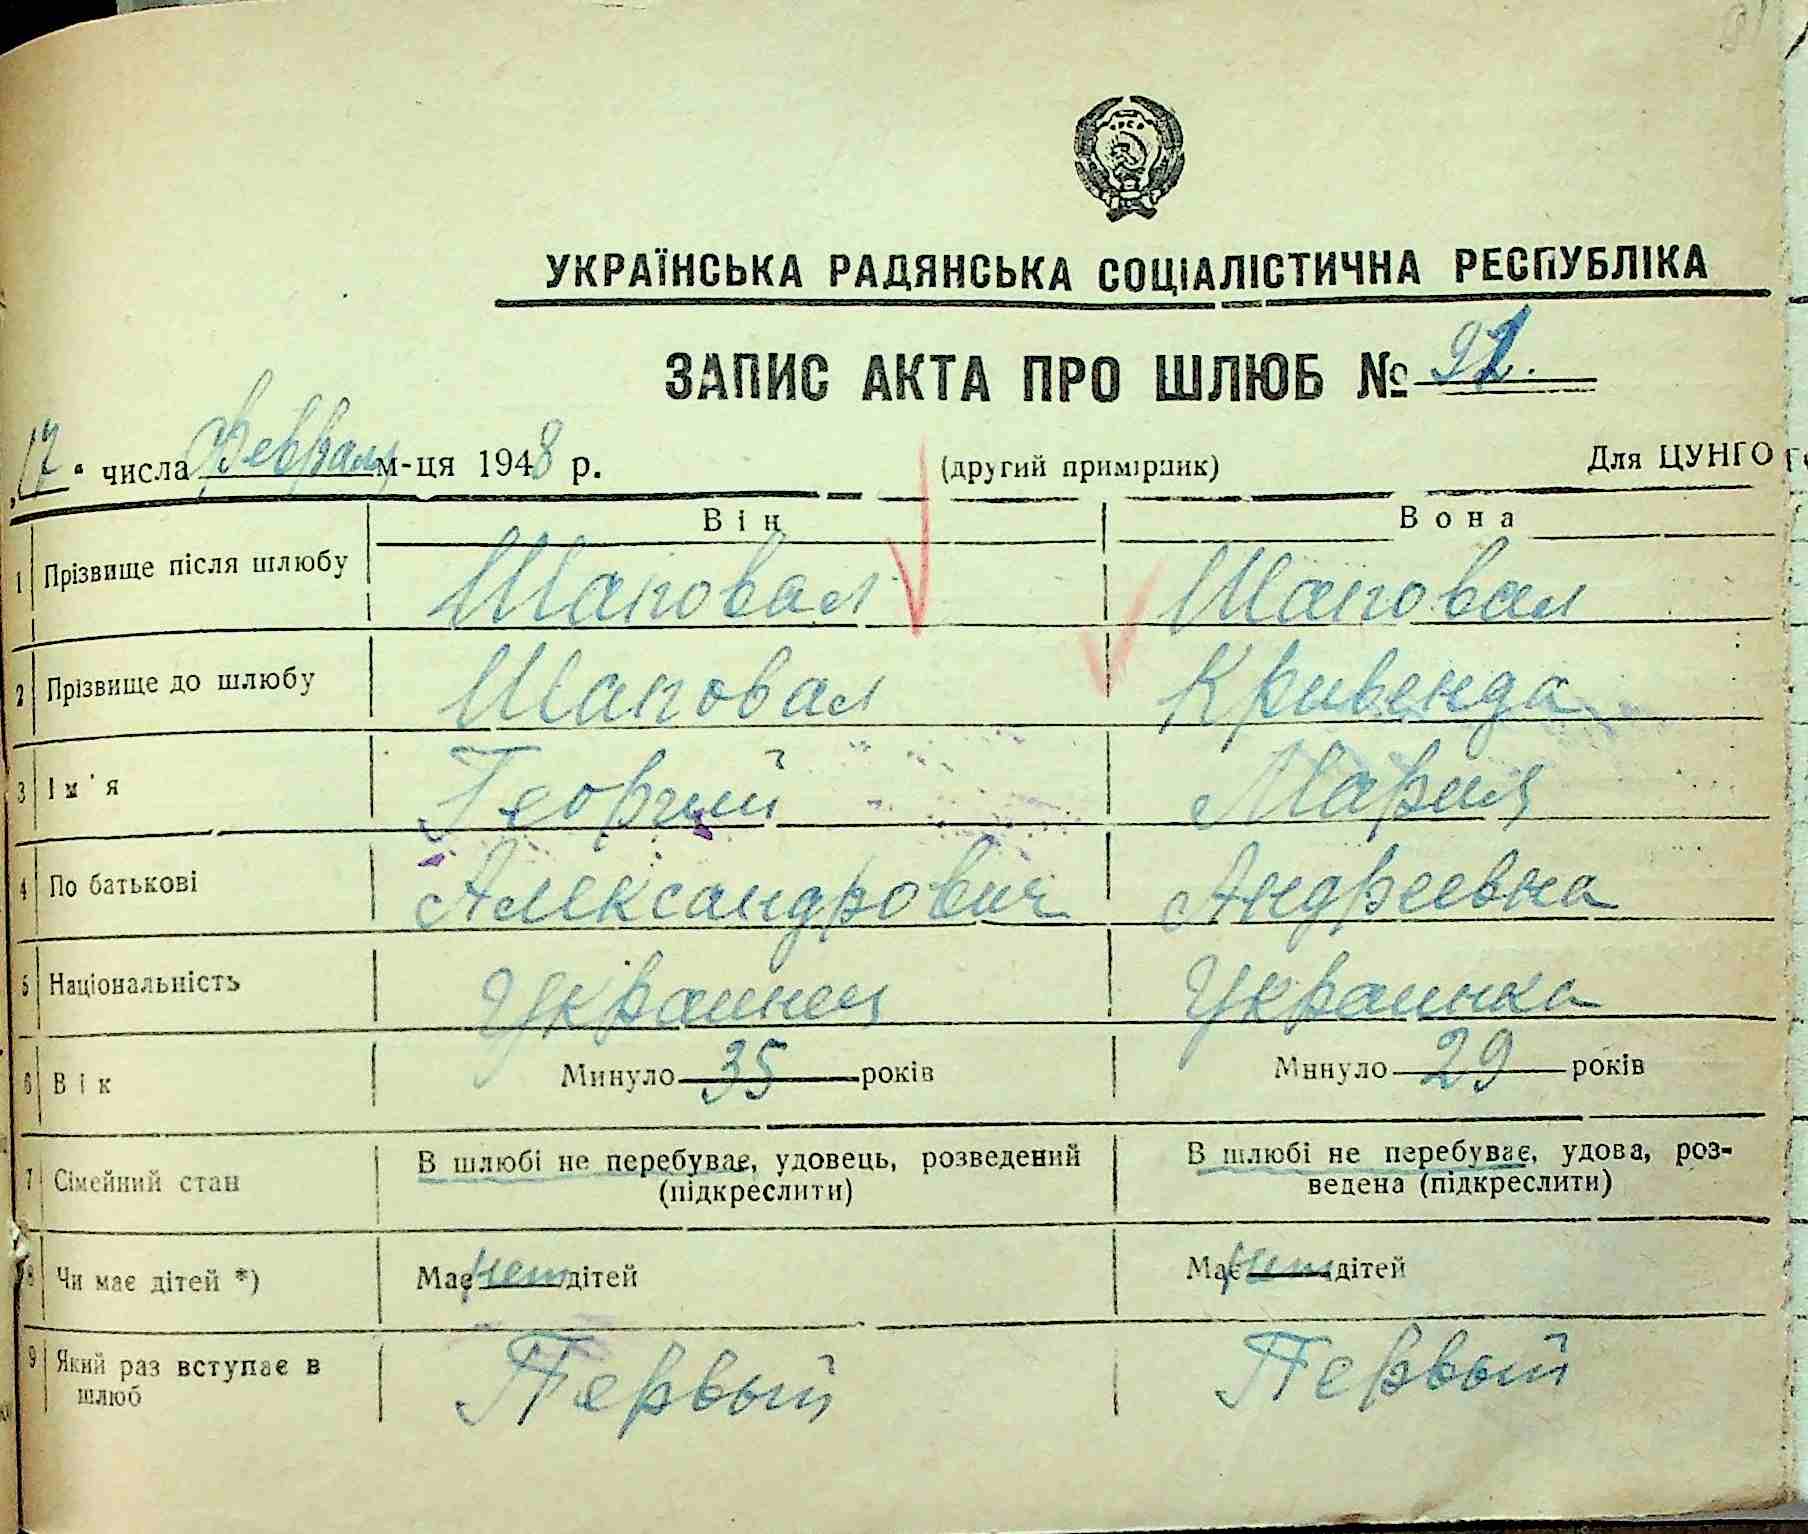 УКРАЇНСЬКА РАДЯНСЬКА СОЦІАЛІСТИЧНА РЕСПУБЛІКА
ЗАПИС АКТА ПРО ШЛЮБ №
„17" числа февраля м-ця 1948 р. (другий примірник) Для ЦУНГО
Він Вона
1 Прізвище після шлюбу Шаповал Шаповал
2 Прізвище до шлюбу Шаповал Кривенда
3 Ім'я Георгий Мария
4 По батькові Александрович Андреевна
5 Національність Украинец Украинка
6 Вік Минуло 35 років Минуло 29 років
7 Сімейний стан В шлюбі не перебуває, удовець, розведений В шлюбі не перебуває, удова, роз-
(підкреслити) ведена (підкреслити)
8 Чи має дітей *) Має нет дітей Має нет дітей
9 Який раз вступає в Первый Первый
шлюб